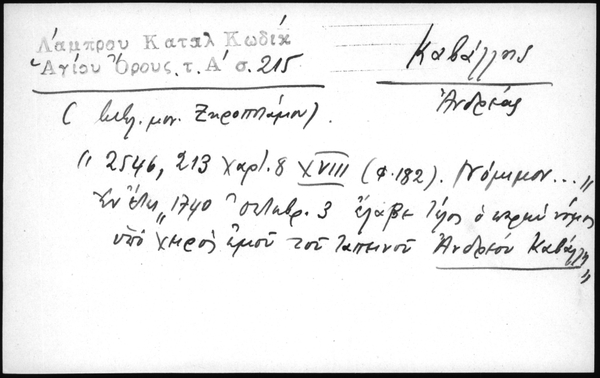 Λάμπρου Καταλ Κωδίκ
Ἁγίου Ὄρους. τ. Α΄ σ. 215
Καβάλλης
Ἀνδρέας
(βιβλ. μον. Ξηροποτάμου).
" 2546, 213 Χαρτ. 8 XVIII (φ. 182). Νόμιμον... "
Ἐν ἔτει "1740 Ὀκτωβρ. 3 ἔλαβε τέλος ὁ παρὼν νόμος
ὑπὸ χειρὸς ἐμοῦ τοῦ ταπεινοῦ Ἀνδρέου Καβάλλη "